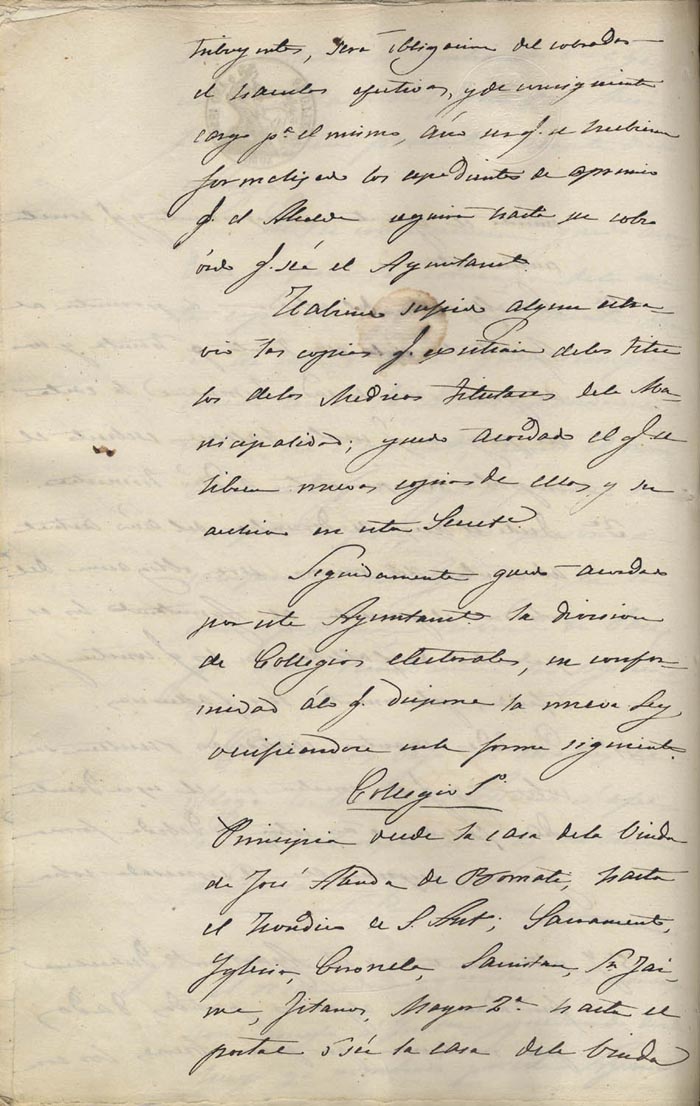 tribuyentes, será obligacion del cobrador
el hacerlos efectivos, y de consiguiente
cargo pª el mismo, aun no q. se hubieren
formalizado los espedientes de apremio
q. el Alcalde seguira hasta su cobro
ó sea el Ayuntamt.
Habiendo sufrido algun estra-
vio las copias q. existian delos titu-
los delos Medicos titulares dela Mu-
nicipalidad; quedo acordado el q. se
libren nuevas copias de ellos y se
archiven en esta Secretª
Seguidamente quedo acordado
por este Ayuntamt. la division
de Collegios electorales, en confor-
midad álo q. dispone la nueva Ley,
verificandose enla forma siguiente.
Collegio 1º
Principia desde la casa dela Viuda
de José de Bonati, hasta
el de S. Ant; Sacramento,
Yglesia, Coronela, Sn Jai-
me, Jitanos, Mayor 2ª hasta el
portal ó sea la casa dela Viuda